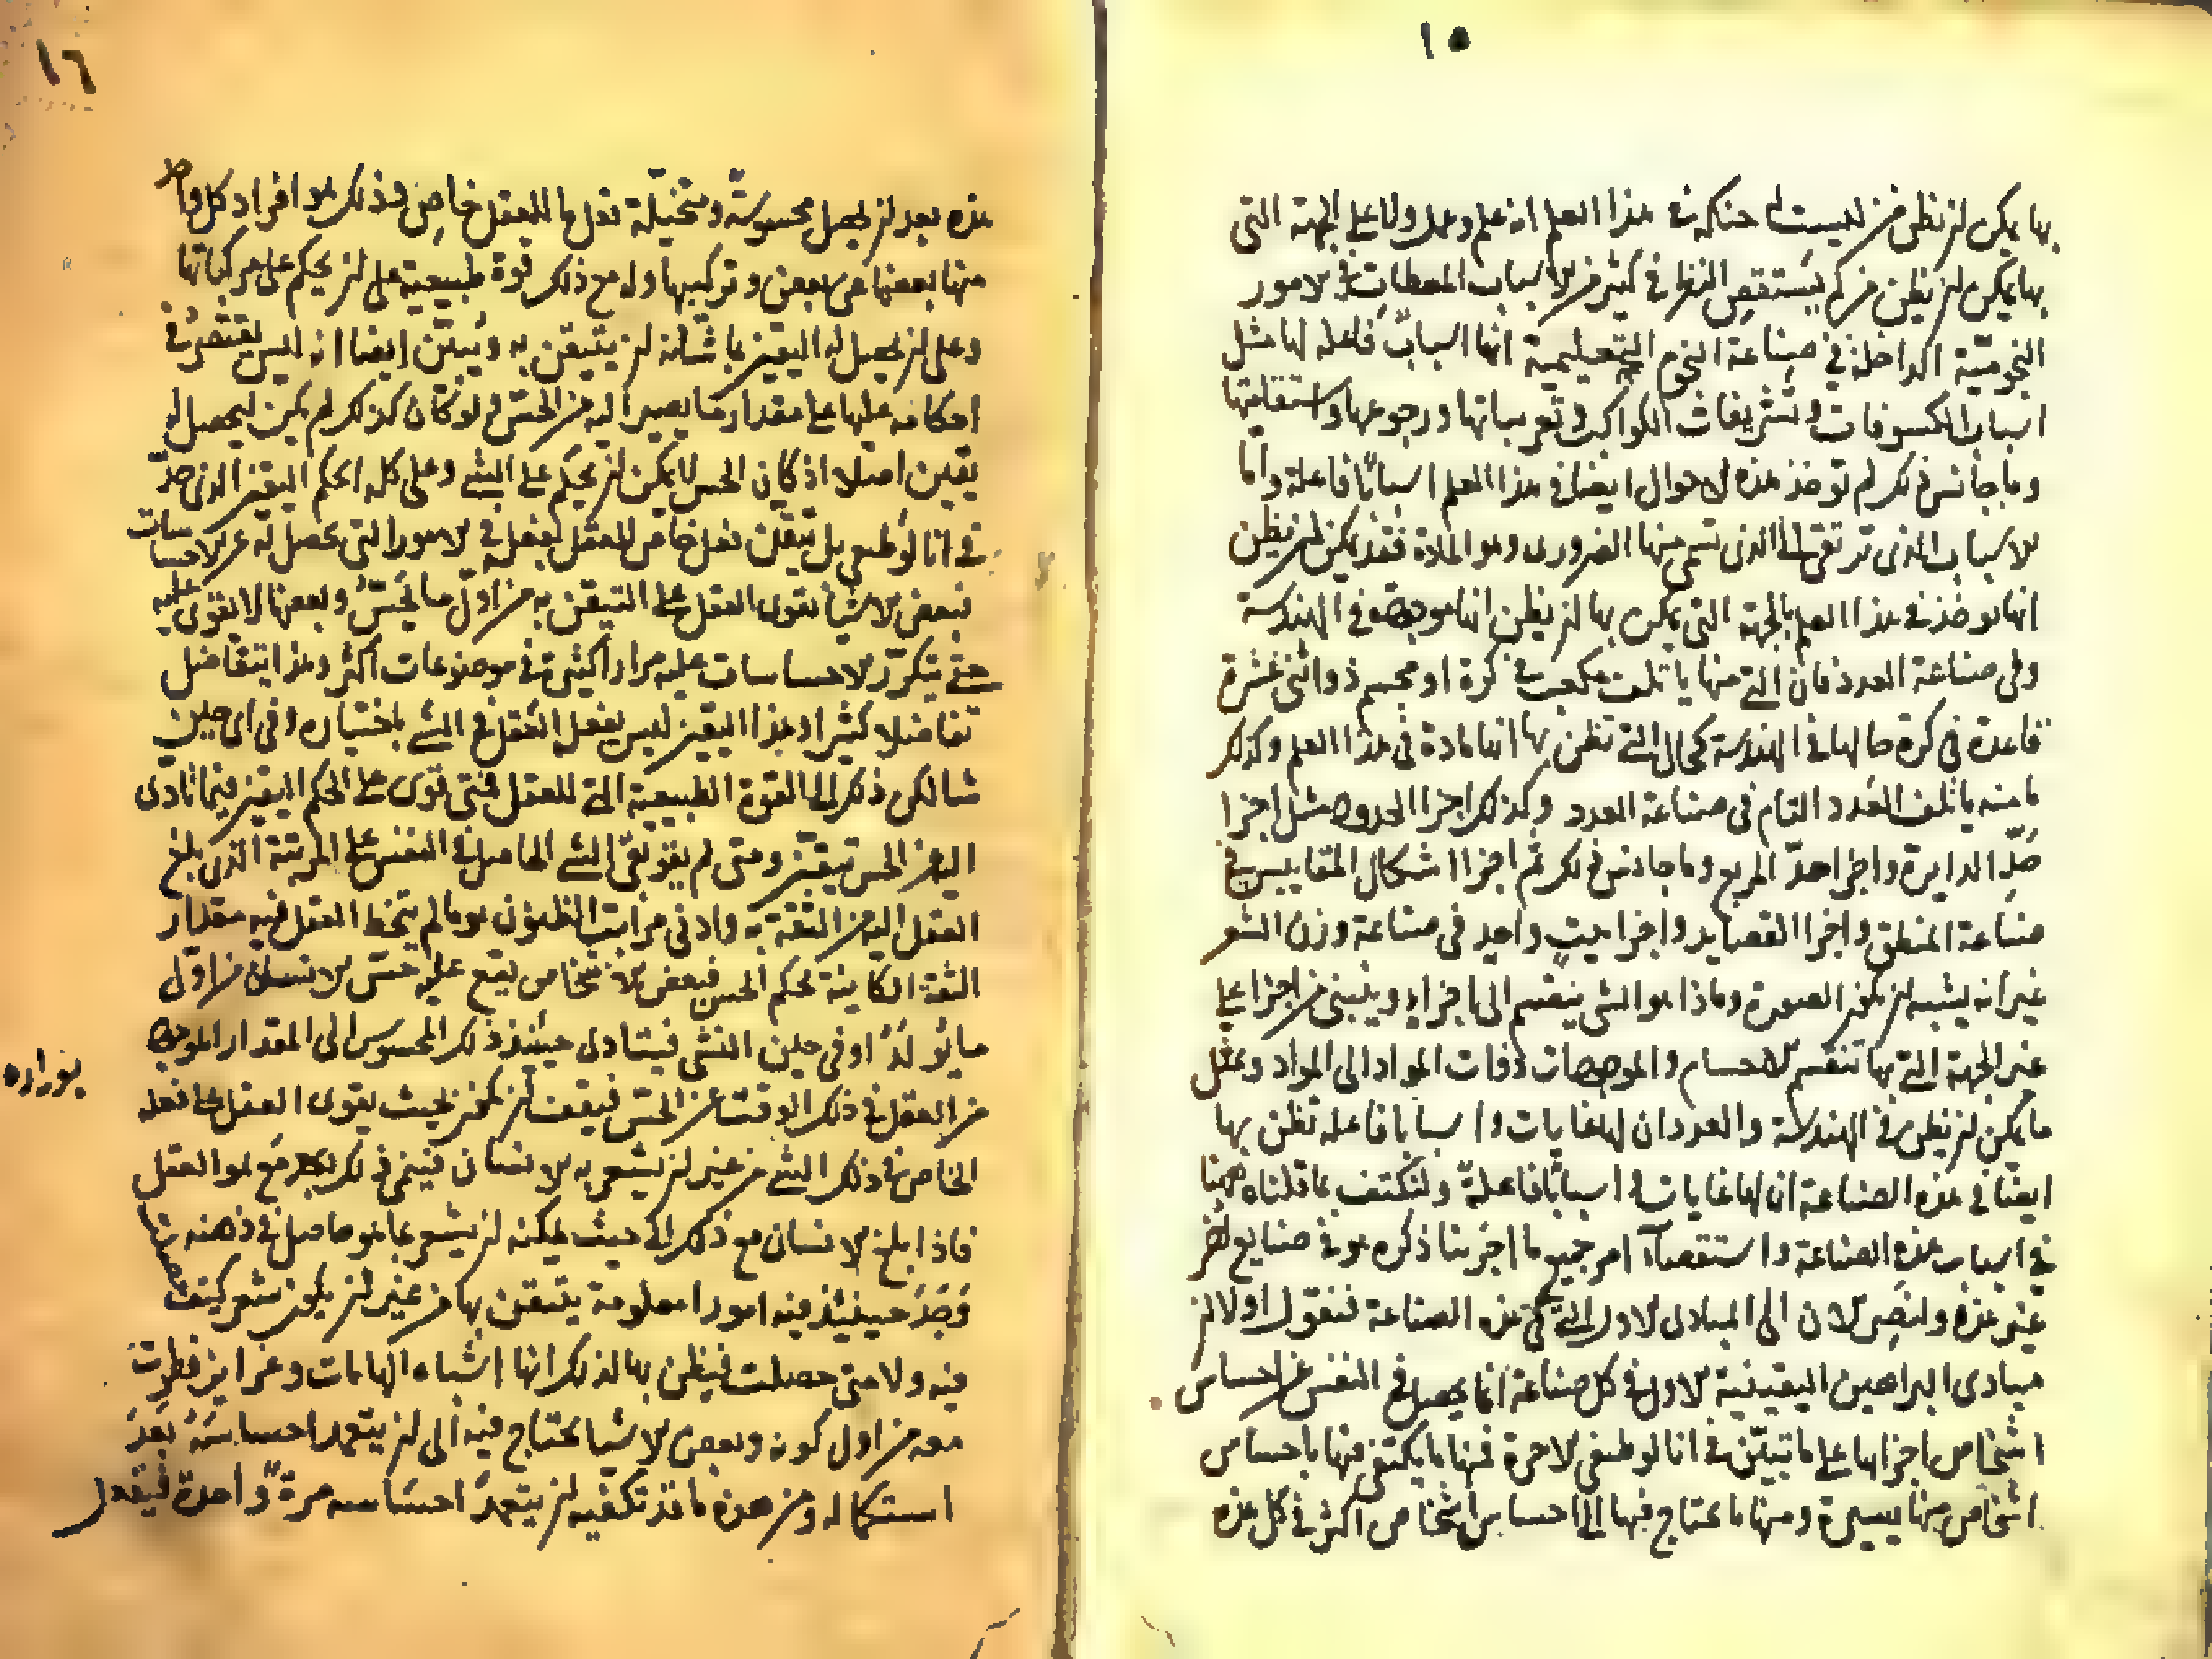 ١٥
بها يمكن ان يظن من ليست له حنكه في هذا العلم انه علم وعمل ولا على الجهة التي
بها يمكن ان يظن من لم يستقص النظر في كثير من الاسباب المعطات في الامور
النجومية الداخلة في صناعة النجوم التعليمية انها اسباب فاعله لها مثل
اسباب الكسوفات وتشريقات الكواكب وتغريباتها ورجوعها واستقامتها
وما جانس ذلك لم توخذ هذه الاحوال ايضا في هذا العلم اسبابا فاعلة واما
الاسباب الذي ترتقى الى الذى تسمى منها الضرورى وهو المادة فقد يمكن ان يظن
انها توخذ في هذا العلم بالجهة التي يمكن بها ان يظن انها موجوده في الهندسة
وفي صناعة العدد فان التي منها ياتلف مكعب في كرة او مجسم ذو اثنى عشرة
قاعدة في كرة حالها في الهندسة كحال التي تظن بها انها مادة في هذا العلم وكذلك
ما منه ياتلف العدد التام في صناعة العدد وكذلك اجزا الحدود مثل اجزا
حدّ الدايرة واجزا حدّ المربع وما جانس ذلك ثم اجزا اشكال المقاييس في
صناعة المنطق واجزا القصايد واجزا بيت واحد في صناعة وزن الشعر
غير انه يشبه ان يكون الصورة وماذا هو الشى ينقسم الى اجزاء ويبنى من اجزا على
غير الجهة التي بها تنقسم الاجسام والموجودات ذوات المواد الى المواد ومثل
ما يمكن ان يظن في الهندسة والعدد ان لها غايات واسبابا فاعله تظن بها
ايضا في هذه الصناعة ان لها غايات واسبابا فاعلة ولنكتف بما قلناه ههنا
في اسباب هذه الصناعة واستقصآء امر جميع ما اجرينا ذكره هو في صنايع اخر
غير هذه ولنصر الان الى المبادى الاول التي في هذه الصناعة فنقول اولا ان
مبادى البراهين اليقينية الاول في كل صناعة انما يحصل في النفس عن احساس
اشخاص اجزاها على ما تبيّن في انالوطيقى الاخرة فمنها ما يكتفى فيها باحساس
اشخاص منها يسيرة ومنها ما يحتاج فيها الى احساس اشخاص اكثر في كل هذه
١٦
هذه بعد ان يحصل محسوسة ومتخيّلة فعل ما للعقل خاص وذلك هو افراد كل واحد
منها بعضها عن بعض وتركيبها وله مع ذلك قوة طبيعية على ان يحكم على مركباتها
وعلى ان يحصل له اليقين بما شانه ان يتيقن به وتبيّن ايضا انه ليس يقتصر في
احكامه عليها على مقدار ما يصير اليه من الحسّ ولو كان كذلك لم يكن ليحصل له
يقين اصلا اذ كان الحس لا يمكن ان يحكم على الشي وعلى كله الحكم اليقين الذي حدّ
في انالوطيقى بل تيقن فعل خاص للعقل يفعل في الامور التي يحصل له عن الاحساسات
فبعض الاشيا يقوى العقل على التيقن به من اول ما يحسّ وبعضها لا يقوى عليه
حتى يتكرّر الاحساسات عليه مرارا كثيرة في موضوعات اكثر وهذا يتفاضل
تفاضلا كثيرا وهذا اليقين ليس يفعل العقل في الشي باختياره وفي اى حين
شا لكن ذلك الى القوة الطبيعية التي للعقل فمتى قوى على الحكم اليقين فيما تادى
اليه من الحس تيقن ومتى لم يقو بقي الشي الحاصل في النفس على المرتبة الذي بلغ
العقل اليه من الثقة به وادنى مراتب الظنون هو ما لم يتخط العقل فيه مقدار
الثقة الكاينة بحكم الحس فبعض الاشخاص يقع عليه حسّ الانسان من اوّل
ما يولد او في حين النشى فيتادى حينئذ ذلك المحسوس الى المقدار الموجود
من العقل في ذلك الوقت عن الحسّ فيقف ان يكون بحيث يقوى العقل على فعله
الخاص في ذلك الشي من غير ان يشعر به الانسان فينمى ذلك مع نمو العقل
فاذا بلغ الانسان مع ذلك الى حيث يمكنه ان يشعر بما هو حاصل في ذهنه
وجد حينئذ فيه امورا معلومة يتيقن بها من غير ان يكون شعر كيف
فيه ولا متى حصلت فيظن بها لذلك انها اشباه الهامات وغرايز فطرت
معه من اول كونه وبعض الاشيا يحتاج فيه الى ان يتعمد احساسه بعد
استكماله ومن هذه ما قد تكفيه ان يتعمد احساسه مرة واحدة فيفعل